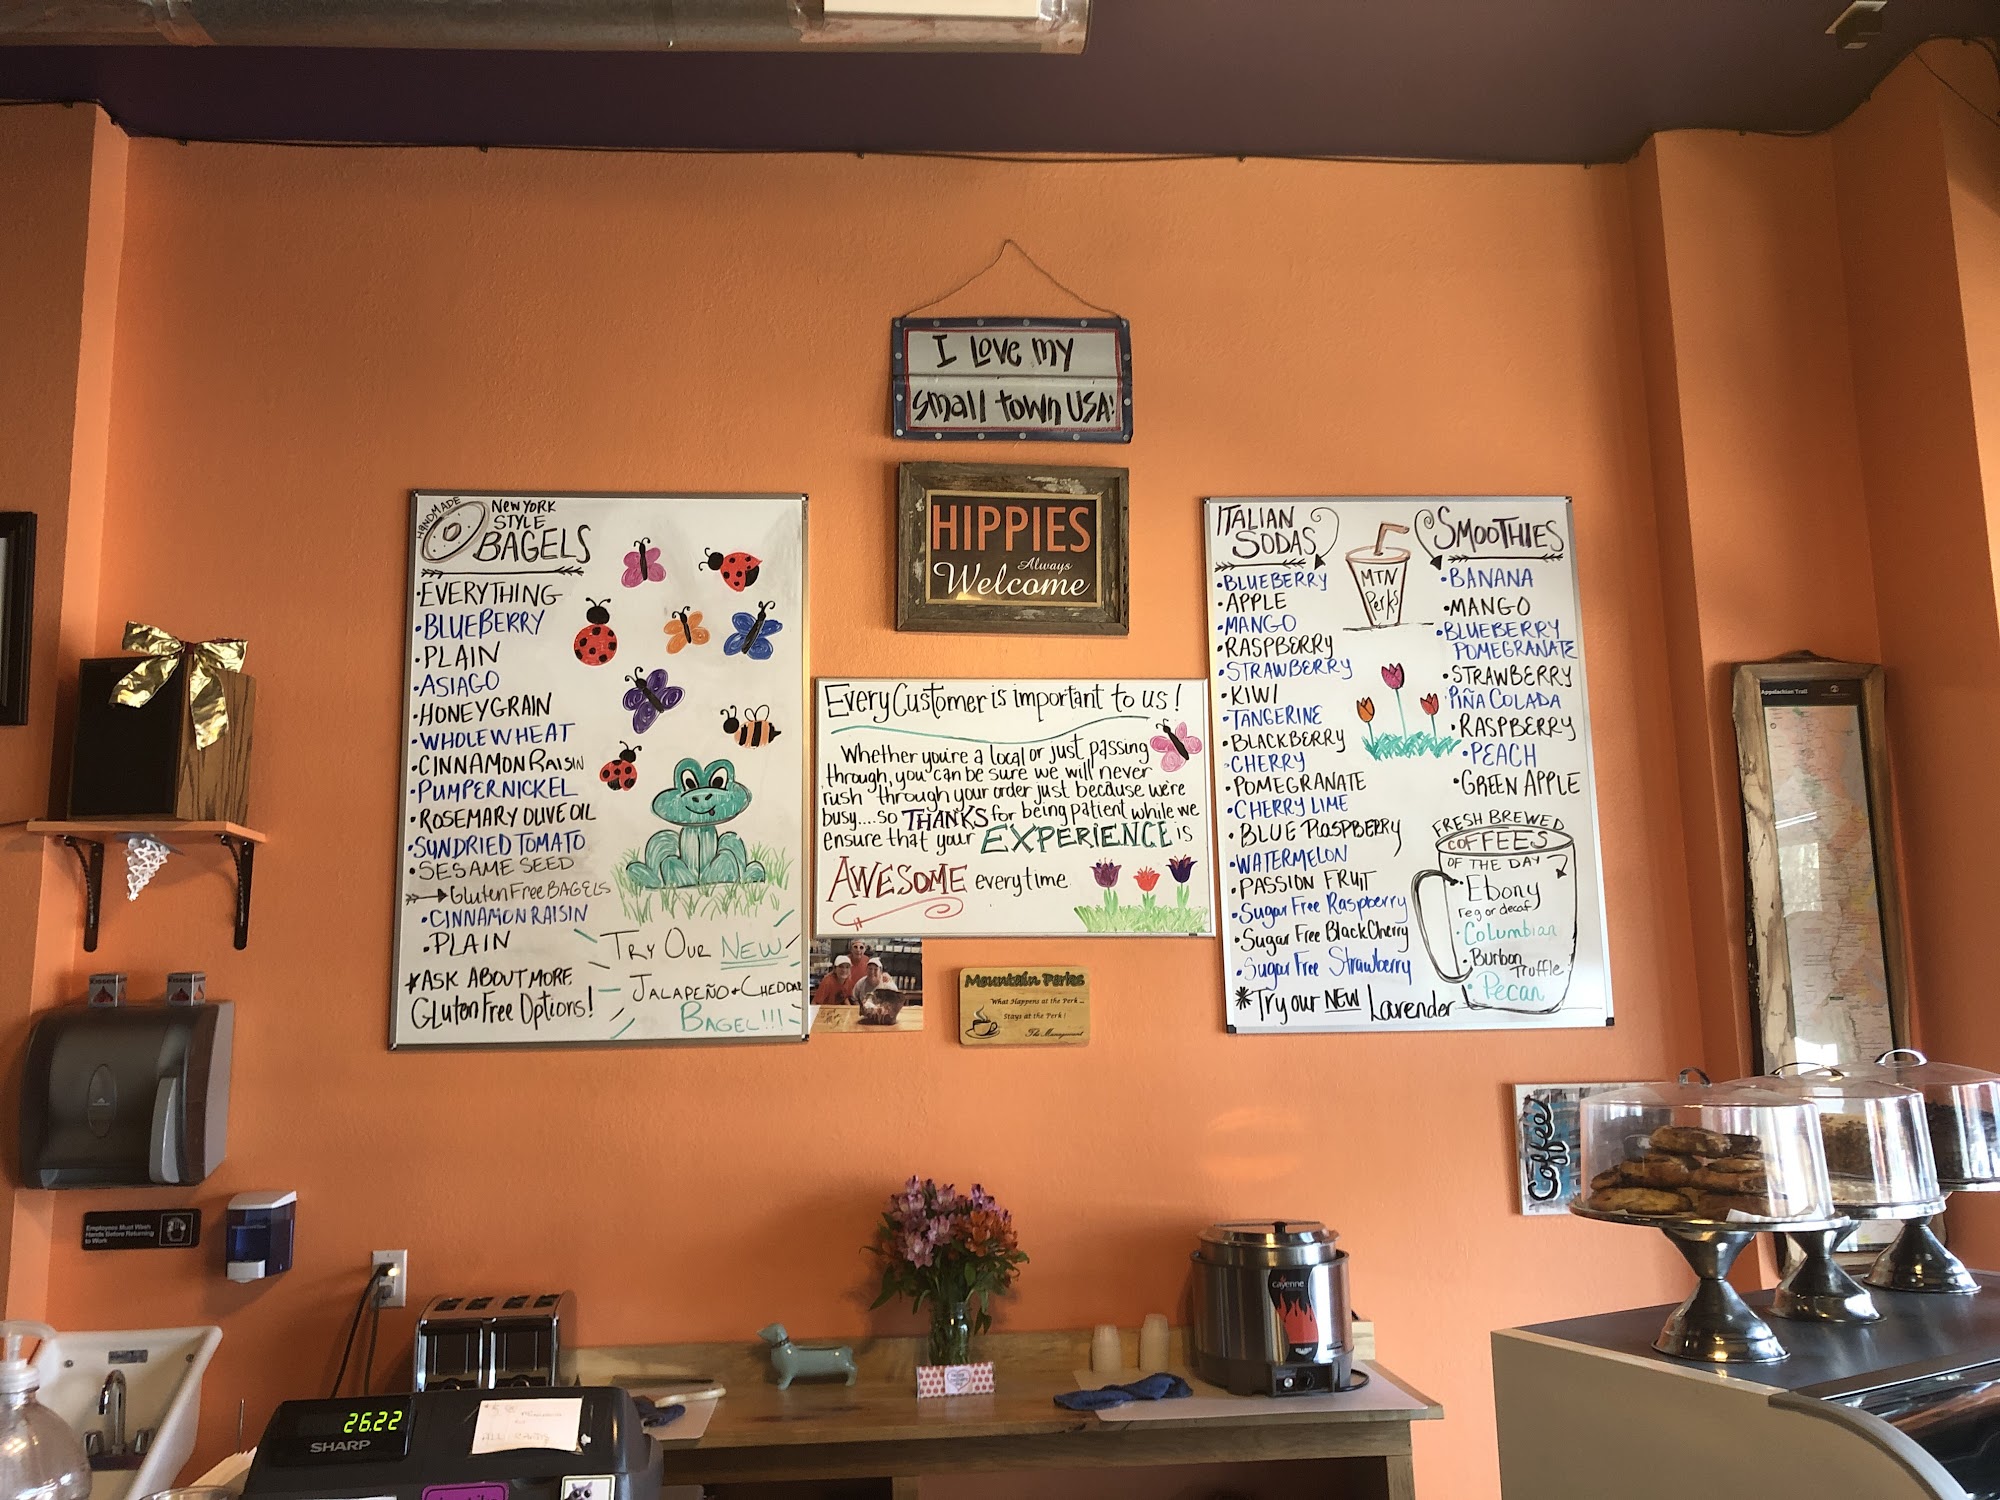 I Love my
small town USA!
HIPPIES
Always
Welcome
HANDMADE
New York
STYLE
BAGELS
•EVERYTHING
•BLUEBERRY
•PLAIN
•ASIAGO
•HONEYGRAIN
•WHOLE WHEAT
•CINNAMON RAISIN
•PUMPERNICKEL
•ROSEMARY OLIVE OIL
•SUNDRIED TOMATO
•SESAME SEED
Gluten Free BAGELS
•CINNAMON RAISIN
•PLAIN
*ASK ABOUT MORE
Gluten Free Options!
TRY OUR NEW
JALAPEÑO + CHEDDAR
BAGEL!!!
Every Customer is important to us!
Whether you're a local or just passing
through, you can be sure we will never
rush through your order just because we're
busy....so THANKS for being patient while we
ensure that your EXPERIENCE is
AWESOME everytime
ITALIAN
SODAS
•BLUEBERRY
•APPLE
•MANGO
•RASPBERRY
•STRAWBERRY
•KIWI
•TANGERINE
•BLACKBERRY
•CHERRY
•POMEGRANATE
•CHERRY LIME
•BLUE RASPBERRY
•WATERMELON
•PASSION FRUIT
•Sugar Free Raspberry
•Sugar Free Black Cherry
•Sugar Free Strawberry
*Try our NEW Lavender
MTN
Perks
SMOOTHIES
•BANANA
•MANGO
•BLUEBERRY
POMEGRANATE
•STRAWBERRY
•PIÑA COLADA
•RASPBERRY
•PEACH
•GREEN APPLE
FRESH BREWED
COFFEES
OF THE DAY
•Ebony
reg or decaf
•Columbian
•Burbon
Truffle
•Pecan
Mountain Perks
What Happens at the Perk ...
Stays at the Perk!
The Management
Appalachian Trail
Coffee
Employees Must Wash
Hands Before Returning
to Work
cayenne
26.22
SHARP